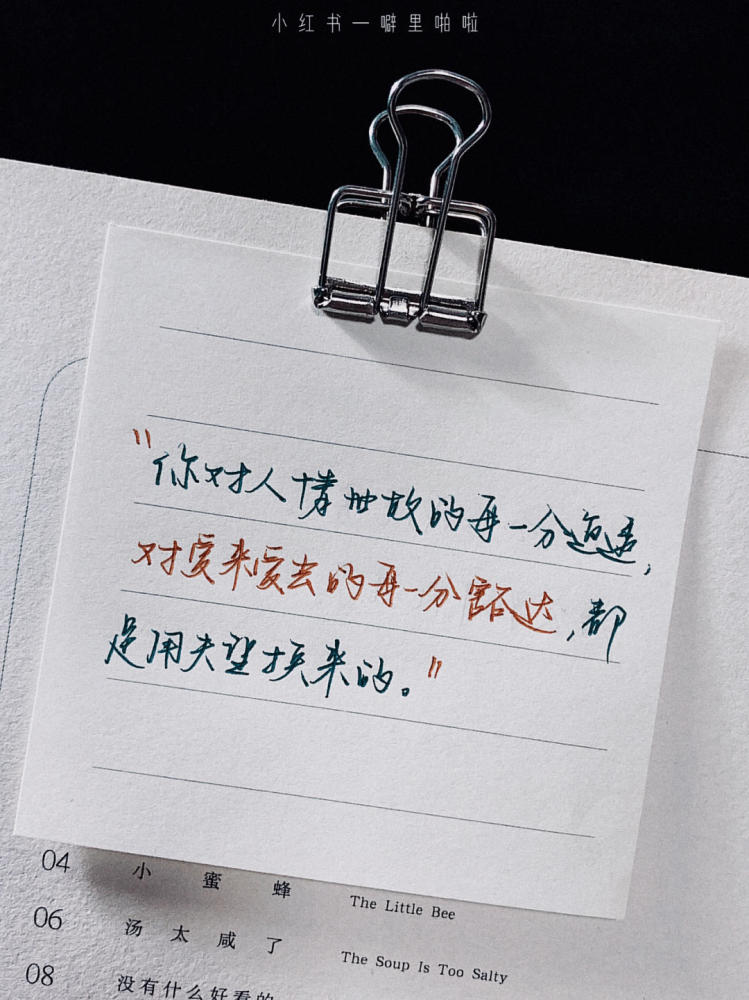 小红书一噼里啪啦
"你对人情世故的每一分通透,
对爱来爱去的每一分豁达,都
是用失望换来的。"
04 小蜜蜂 The Little Bee
06 汤太咸了 The Soup Is Too Salty
08 没有什么好看的